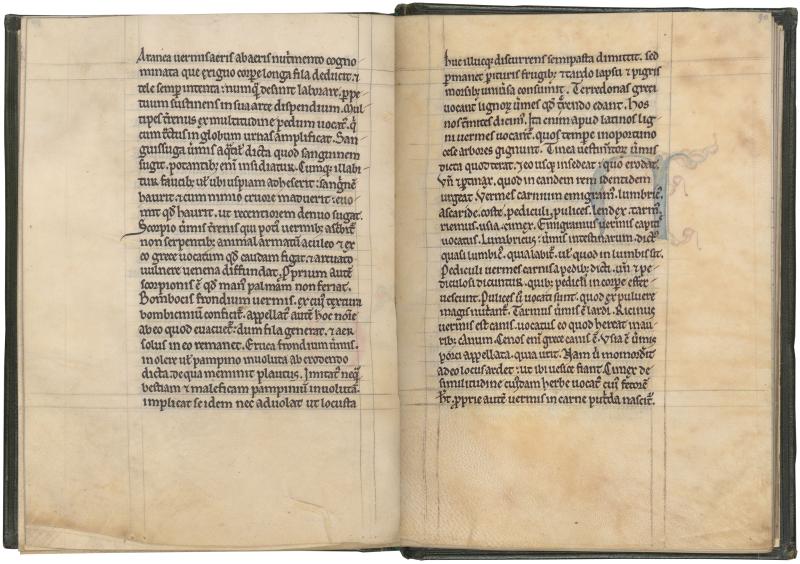 Aranea vermis aeris ab aeris nut̾mento cogno
minata que exiguo corꝑe longa fila deducit. ⁊
tele semꝑ intenta : numꝗ̃ desinit laborare. ꝑpe
tuum sustinens in sua arte dispendium. Mul
tipes t̾renus ex multitudine pedum uocat᷒. q̇
cum in globum urnas amplificat. San
guissuga ũmis aq̃tił dicta quod sanguinem
sugit. potantibꝫ eni᷒ insidiatur. Cumqꝫ illabi
tur faucibꝫ uł ubi uspiam adheserit : sanguinẽ
haurit. ⁊ cum nimio cruore maduerit : euo
mit qđ haurit. ut recentiorem denuo sugat.
Scorpio ũmis t̾renis qui poti᷒ vermibꝫ
non serpentibꝫ. animal armatũ aculeo ⁊ ex
eo grece uocatum qđ caudam figat. ⁊ arcuato
uulnere uenena diffundat. Ꝓprium autẽ
scorpionis ẽ qđ man᷒ palmam non feriat.
Bombocis frondium vermis. ex cui᷒ textura
bombiciniũ conficit᷒. appellat᷒ autẽ hoc noĩe
ab eo quod euacuet᷒ : dum fila generat. ⁊ aer
solus in eo remanet. Eruca frondium ũmis.
in olere uł pampino inuoluta ab erodendo
dicta. de qua meminit plautus. Imitat᷒ neqꝗ̃
bestiam ⁊ maleficam pampiniũ inuoluta.
implicat se idem nec aduolat ut locusta
huc illucqꝫ discurrens semipasta dimittit. sed
ꝑmanet perituris frugibꝫ ⁊ tardo lapsu ⁊ pigris
morsibꝫ uniũsa consumit. Terredonas greci
uocant lignor᷒ ũmes qđ t̾rendo edant. Hos
nos t̾mites dicim᷒. Ita enim apud latinos lig
ni vermes vocant᷒. quos tempe inoportuno
cese arbores gignunt. Tinea uestim̃tor᷒ ũmis
dicta quod terat. ⁊ eo usqꝫ insedeat : quo erodat.
Vñ ⁊ ꝑtinax. quod in eandem rem identidem
urgeat. Vermes carnium emigrani᷒. lumbric᷒.
Ascaride. coste. pediculi. pulices. lendex. tarm᷒.
ricinus. usia. cimex. Emigranius vermis capiti᷒
vocatus. Lumbricus : ũmis intestinarum. dict᷒
quasi lumbic᷒. quia labit᷒. uł quod in lumbis sit.
Pediculi vermes carnis a pedibꝫ dicti. uñ ⁊ pe
diculosi dicuntur. quibꝫ pediculi in corꝑe effer
uescunt. Pulices ũ uocati sunt. quod ex puluere
magis nutrant᷒. Tarmus ũmis ẽ lardi. Ricinus
vermis est canis. uocatus eo quod hereat in au
ribꝫ canum. Cenos eni᷒ grece canis ẽ. Vsia ẽ ũmis
porci appellata. quia urit. Nam ũ momordit
adeo locus ardet : ut ibi uesice fiant. Cimex de
similitudine cuiusdam herbe uocat᷒ cui᷒ fetorẽ
ħt. ꝓprie autẽ vermis in carne putrida nascit᷒.
90